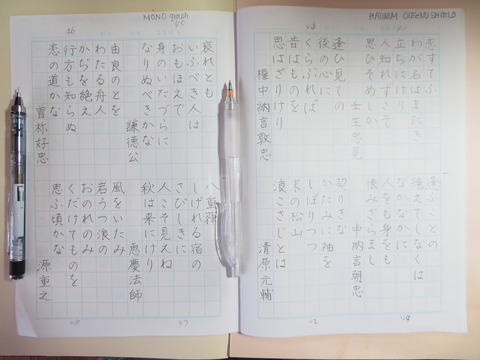 PLATINUM OLEENU SHIELD
恋すてふ
わが名はまだき
立ちにけり
人知れずこそ
思ひそめしか
壬生忠見
43
逢ひ見ての
後の心に
くらぶれば
昔はものを
思はざりけり
権中納言敦忠
44
逢ふことの
絶えてしなくは
なかなかに
人をも身をも
恨みざらまし
中納言朝忠
42
契りきな
かたみに袖を
しぼりつつ
末の松山
浪こさじとは
清原元輔
MONO graph
45
哀れとも
いふべき人は
おもほえで
身のいたづらに
なりぬべきかな
謙徳公
46
由良のとを
わたる舟人
かぢを絶え
行方も知らぬ
恋の道かな
曽祢好忠
47
八重葎
しげれる宿の
さびしきに
人こそ見えね
秋は来にけり
恵慶法師
48
風をいたみ
岩うつ浪の
おのれのみ
くだけてものを
思ふ頃かな
源重之